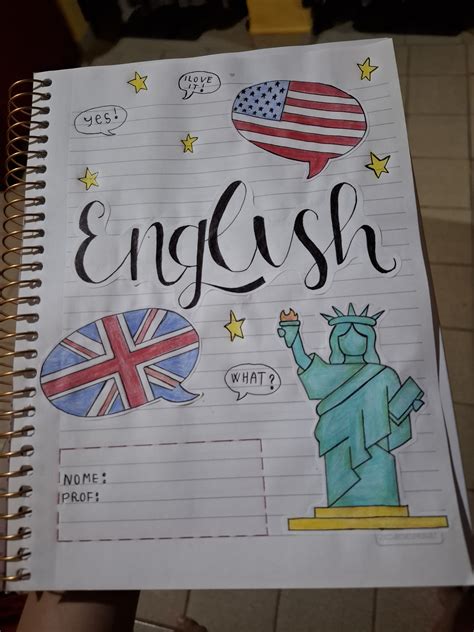 I LOVE
IT!
Yes!
English
WHAT?
NOME:
PROF: